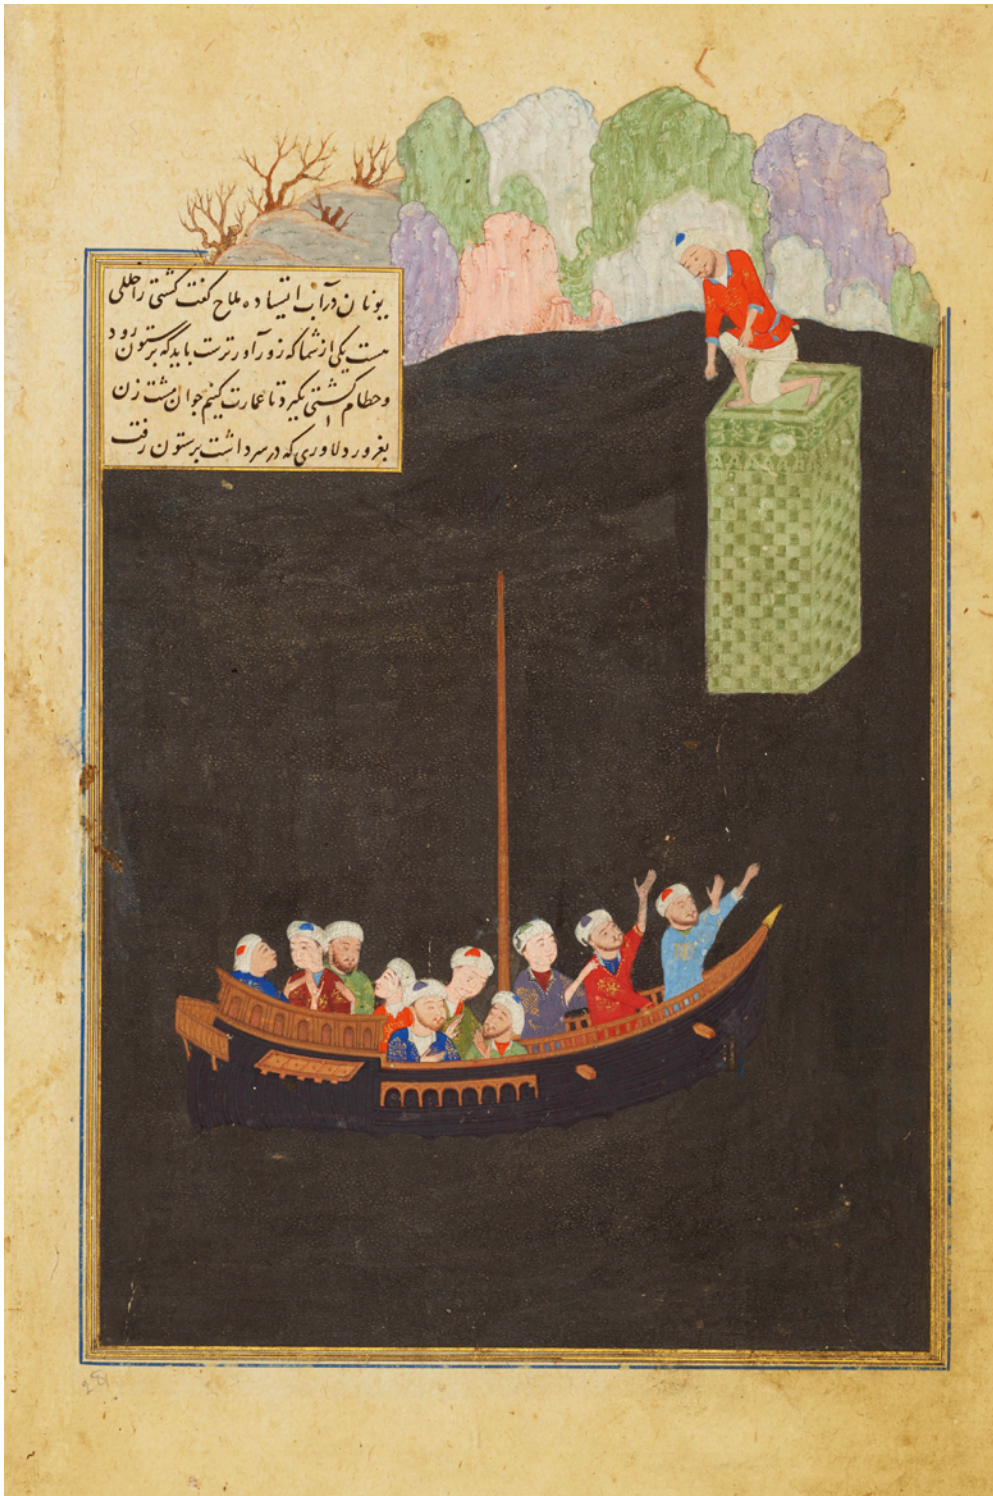 یونان در آب ایستاده ملاح گفت کشتی را خللی
هست یکی از شما که زورآورترست باید که برستون رود
و خطام کشتی بگیرد تا عمارت کنیم جوان مشت زن
بغرور دلاوری که در سر داشت برستون رفت